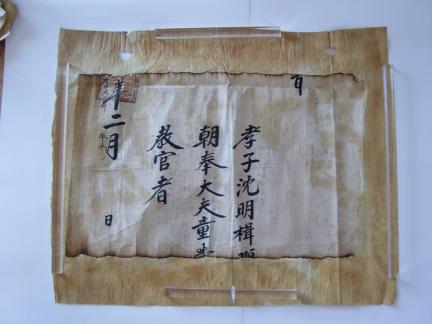 孝子沈明楫
朝奉大夫童
敎官者
年二月 日